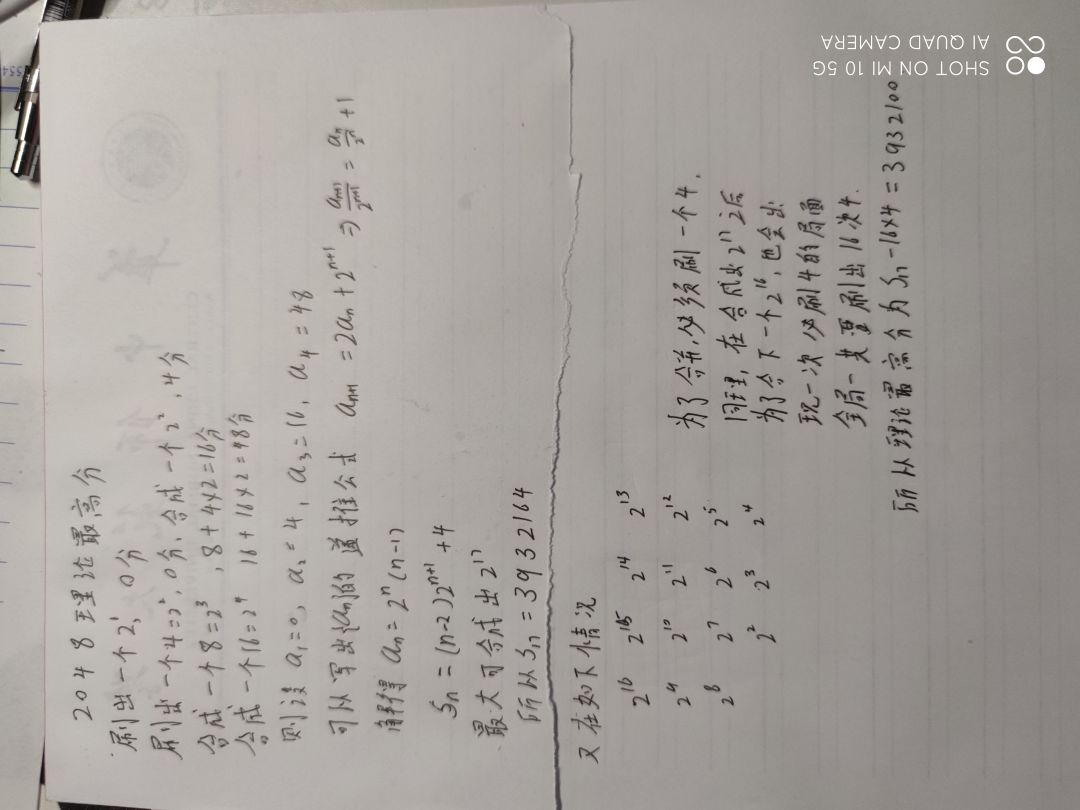 2048理论最高分
刷出一个2¹, 0分
刷出一个4=2², 0分, 合成一个2², 4分
合成一个8=2³, 8+4×2=16分
合成一个16=2⁴ 16+16×2=48分
则设 a₁=0, a₂=4, a₃=16, a₄=48
可以写出{aₙ}的递推公式 aₙ₊₁=2aₙ+2ⁿ⁺¹ ⇒ aₙ₊₁/2ⁿ⁺¹ = aₙ/2ⁿ +1
解得 aₙ=2ⁿ(n-1)
Sₙ=(n-2)2ⁿ⁺¹+4
最大可合成出2¹⁷
所以S₁₇=3932164
又在如下情况
2¹⁶ 2¹⁵ 2¹⁴ 2¹³
2⁹ 2¹⁰ 2¹¹ 2¹²
2⁸ 2⁷ 2⁶ 2⁵
2² 2³ 2⁴
为了合并,必须刷一个4.
同理,在合成出2¹⁷之后
为了合下一个2¹⁶,也会出
现一次必刷4的局面
全局一共要刷出16次4.
所以理论最高分为S₁₇-16×4=3932100
SHOT ON MI 10 5G
AI QUAD CAMERA